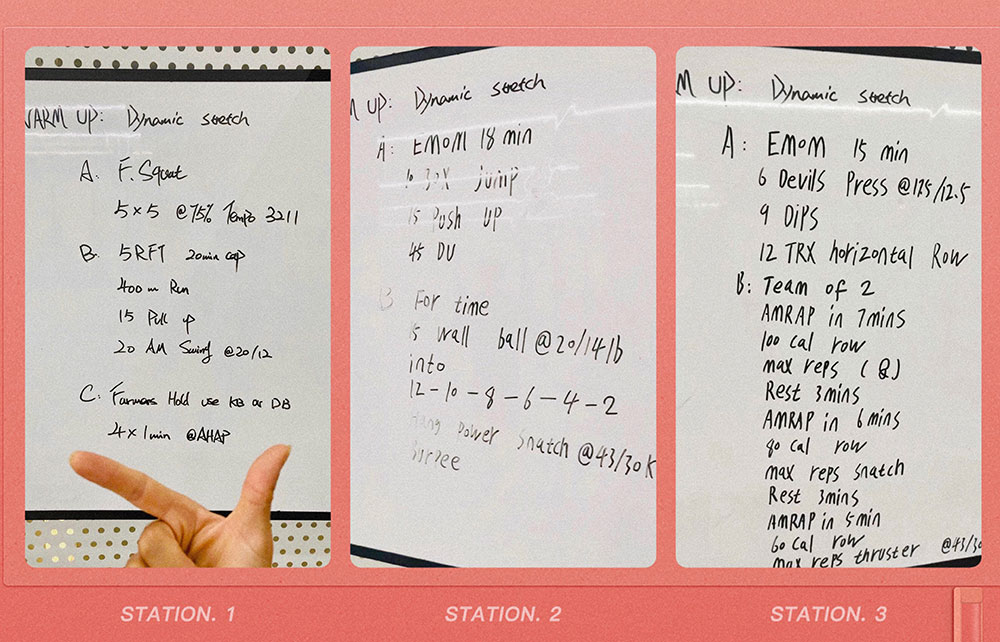 WARM UP: Dynamic stretch
A. F. Squat
5×5 @75% Tempo 3211
B. 5RFT 20min cap
400m Run
15 Pull up
20 AM Swing @20/12
C: Farmers Hold use KB or DB
4×1min @AHAP
STATION. 1
M UP: Dynamic stretch
A: EMOM 18 min
jump
15 Push UP
45 DU
B For time
wall ball @20/14lb
into
12-10-8-6-4-2
Hang power snatch @43/30K
STATION. 2
M UP: Dynamic stretch
A: EMOM 15 min
6 Devils Press @125/12.5
9 DiPS
12 TRX horizontal Row
B: Team of 2
AMRAP in 7mins
100 cal row
max reps
Rest 3mins
AMRAP in 6mins
80 cal row
max reps snatch
Rest 3mins
AMRAP in 5min
60 cal row
max reps thruster @43/30
STATION. 3